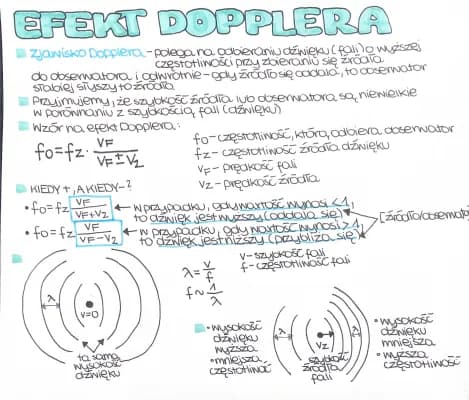 EFEKT DOPPLERA
Zjawisko Dopplera - polega na odbieraniu dźwięku (fali) o wyższej
częstotliwości przy zbieraniu się źródła
do obserwatora i odwrotnie - gdy źródło się oddala, to obserwator
słabiej słyszy to źródło
Przyjmujemy, że szybkość źródła lub obserwatora są niewielkie
w porównaniu z szybkością fali (dźwięku)
Wzór na efekt Dopplera:
fo = fz · VF / VF ± VZ
fo - częstotliwość, którą odbiera obserwator
fz - częstotliwość źródła dźwięku
VF - prędkość fali
VZ - prędkość źródła
KIEDY +, A KIEDY - ?
• fo = fz VF / VF + VZ ← w przypadku, gdy wartość wynosi < 1,
to dźwięk jest wyższy (oddala się)
• fo = fz VF / VF - VZ ← w przypadku, gdy wartość wynosi > 1,
to dźwięk jest niższy (przybliża się)
[źródło/obserwator]
λ = v / f
v - szybkość fali
f - częstotliwość fali
f ~ 1 / λ
λ
v=0
ta sama
wysokość
dźwięku
• wysokość
dźwięku
wyższa
• mniejsza
częstotliwość
λ
vz
szybkość
źródła
fali
• wysokość
dźwięku
mniejsza
• wyższa
częstotliwość